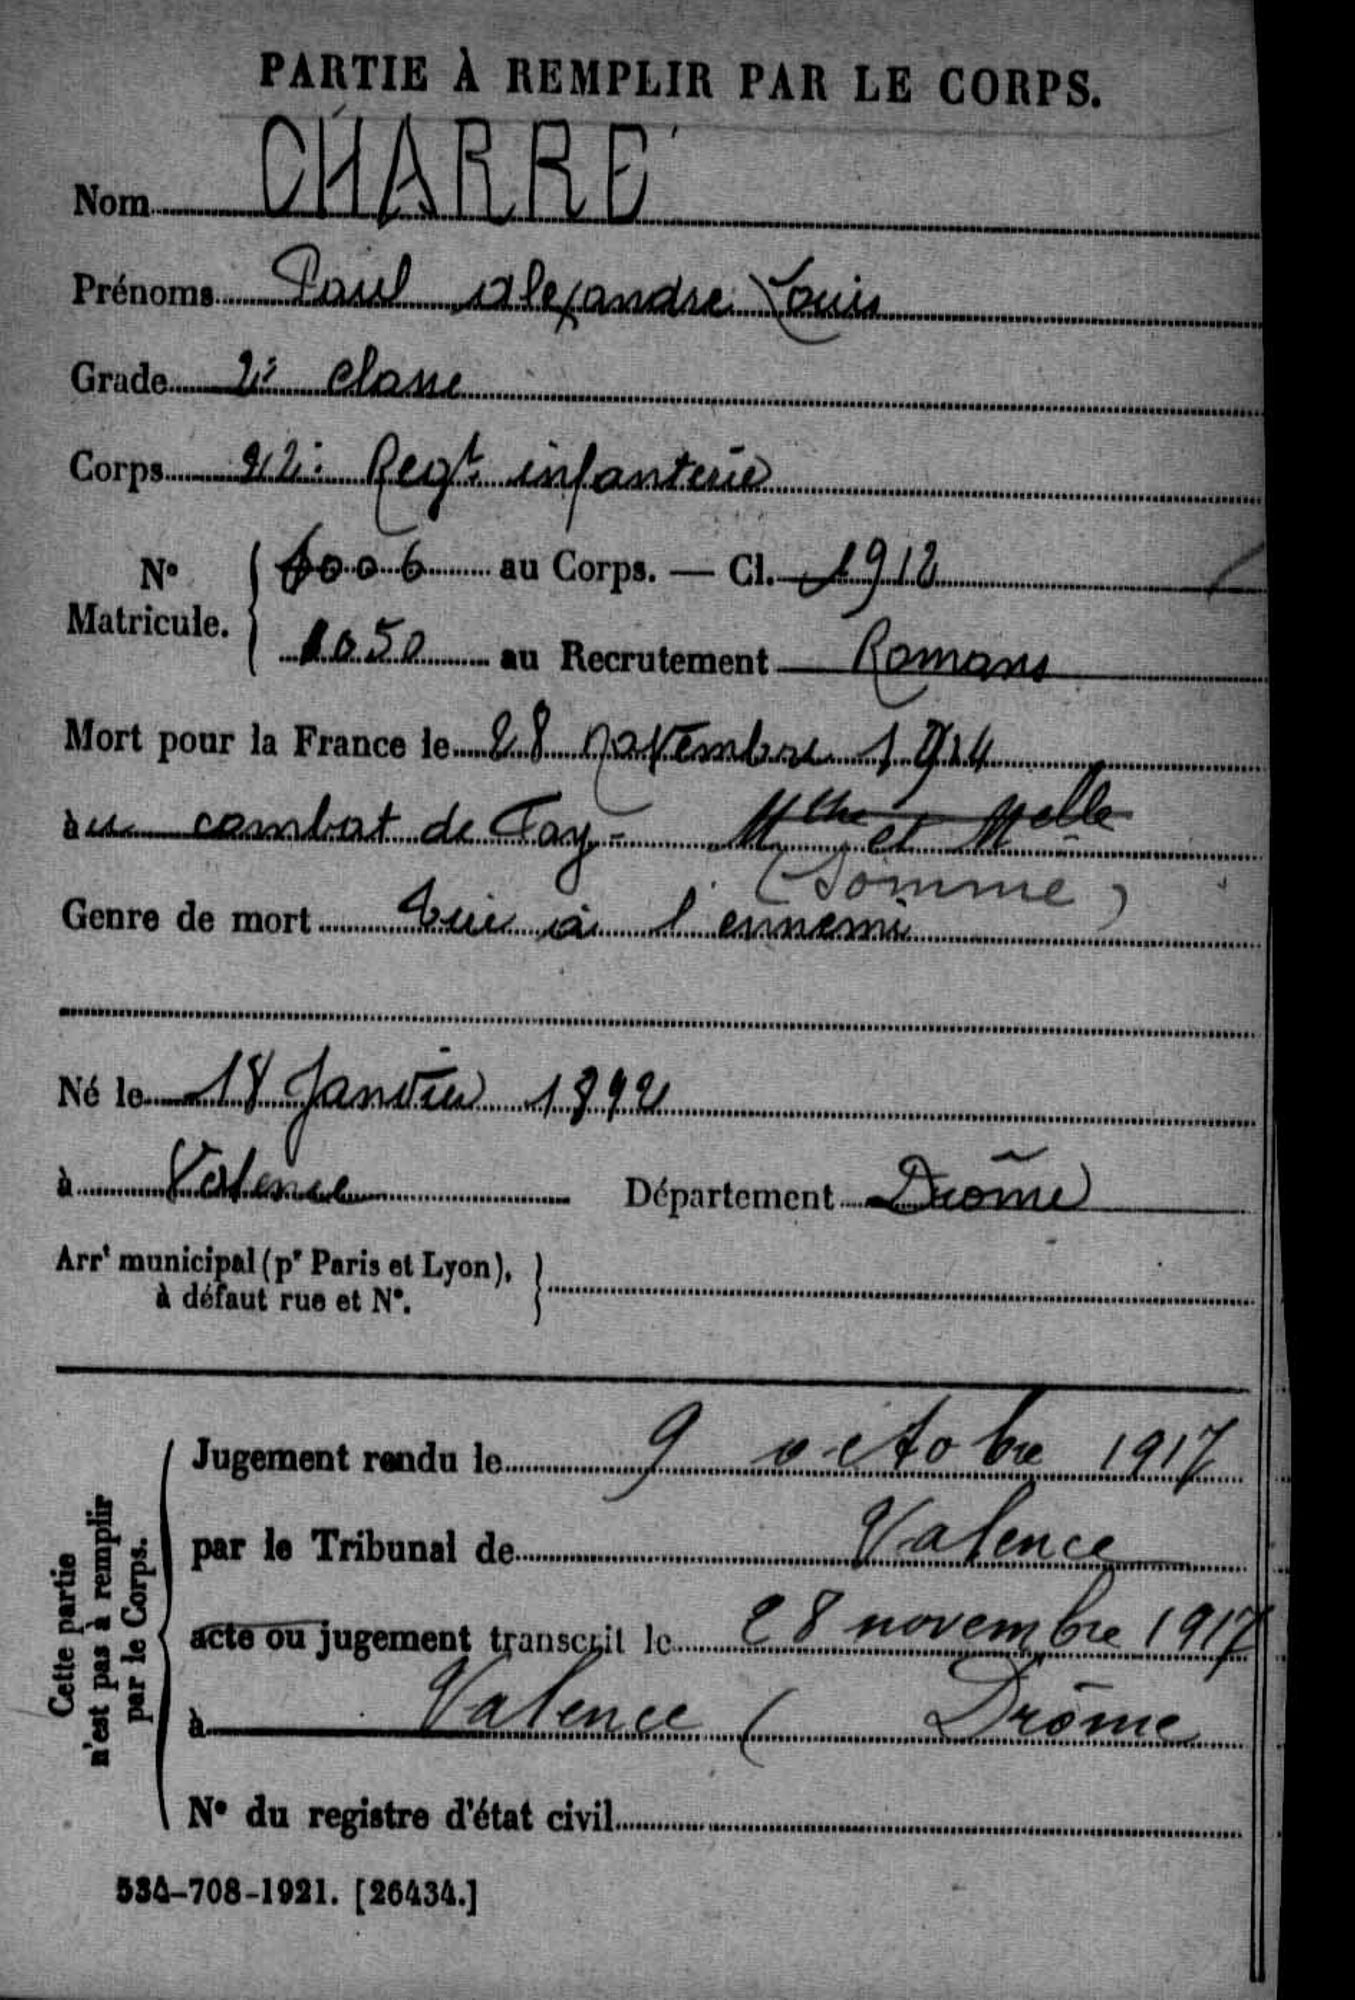 PARTIE À REMPLIR PAR LE CORPS.
Nom CHARRE
Prénoms Paul Alexandre Louis
Grade 2e classe
Corps 22e Regt infanterie
No Matricule. 6006 au Corps. — Cl. 1912
1050 au Recrutement Romans
Mort pour la France le 28 novembre 1914
au combat de Fay - Mthe et Melle
(Somme)
Genre de mort tué à l'ennemi
Né le 18 Janvier 1892
à Valence Département Drôme
Arrt municipal (pr Paris et Lyon),
à défaut rue et No.
Cette partie
n'est pas à remplir
par le Corps.
Jugement rendu le 9 octobre 1917
par le Tribunal de Valence
acte ou jugement transcrit le 28 novembre 1917
à Valence ( Drôme
No du registre d'état civil
534-708-1921. [26434.]